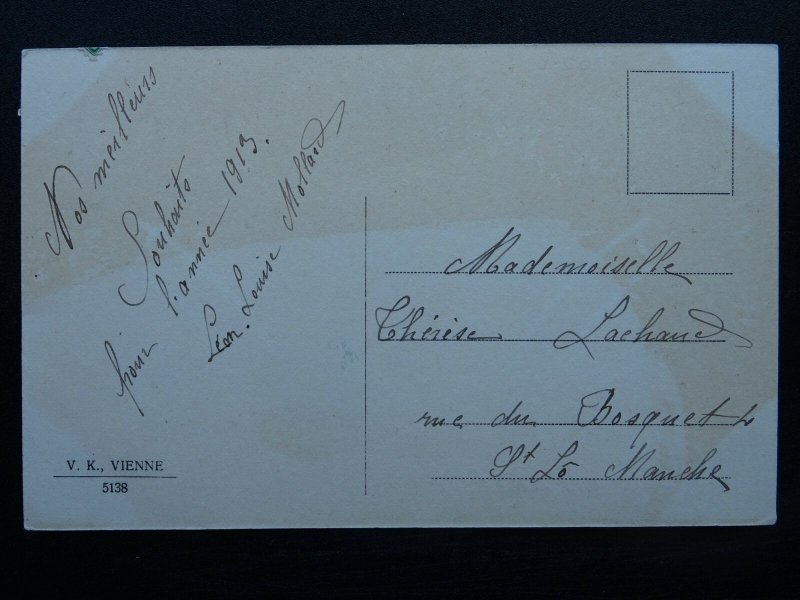 Nos meilleurs
Souhaits
pour l'année 1913.
Léon. Louise Mollard
V. K., VIENNE
5138
Mademoiselle
Thérèse Lachaud
rue du Bosquet
St Lô Manche